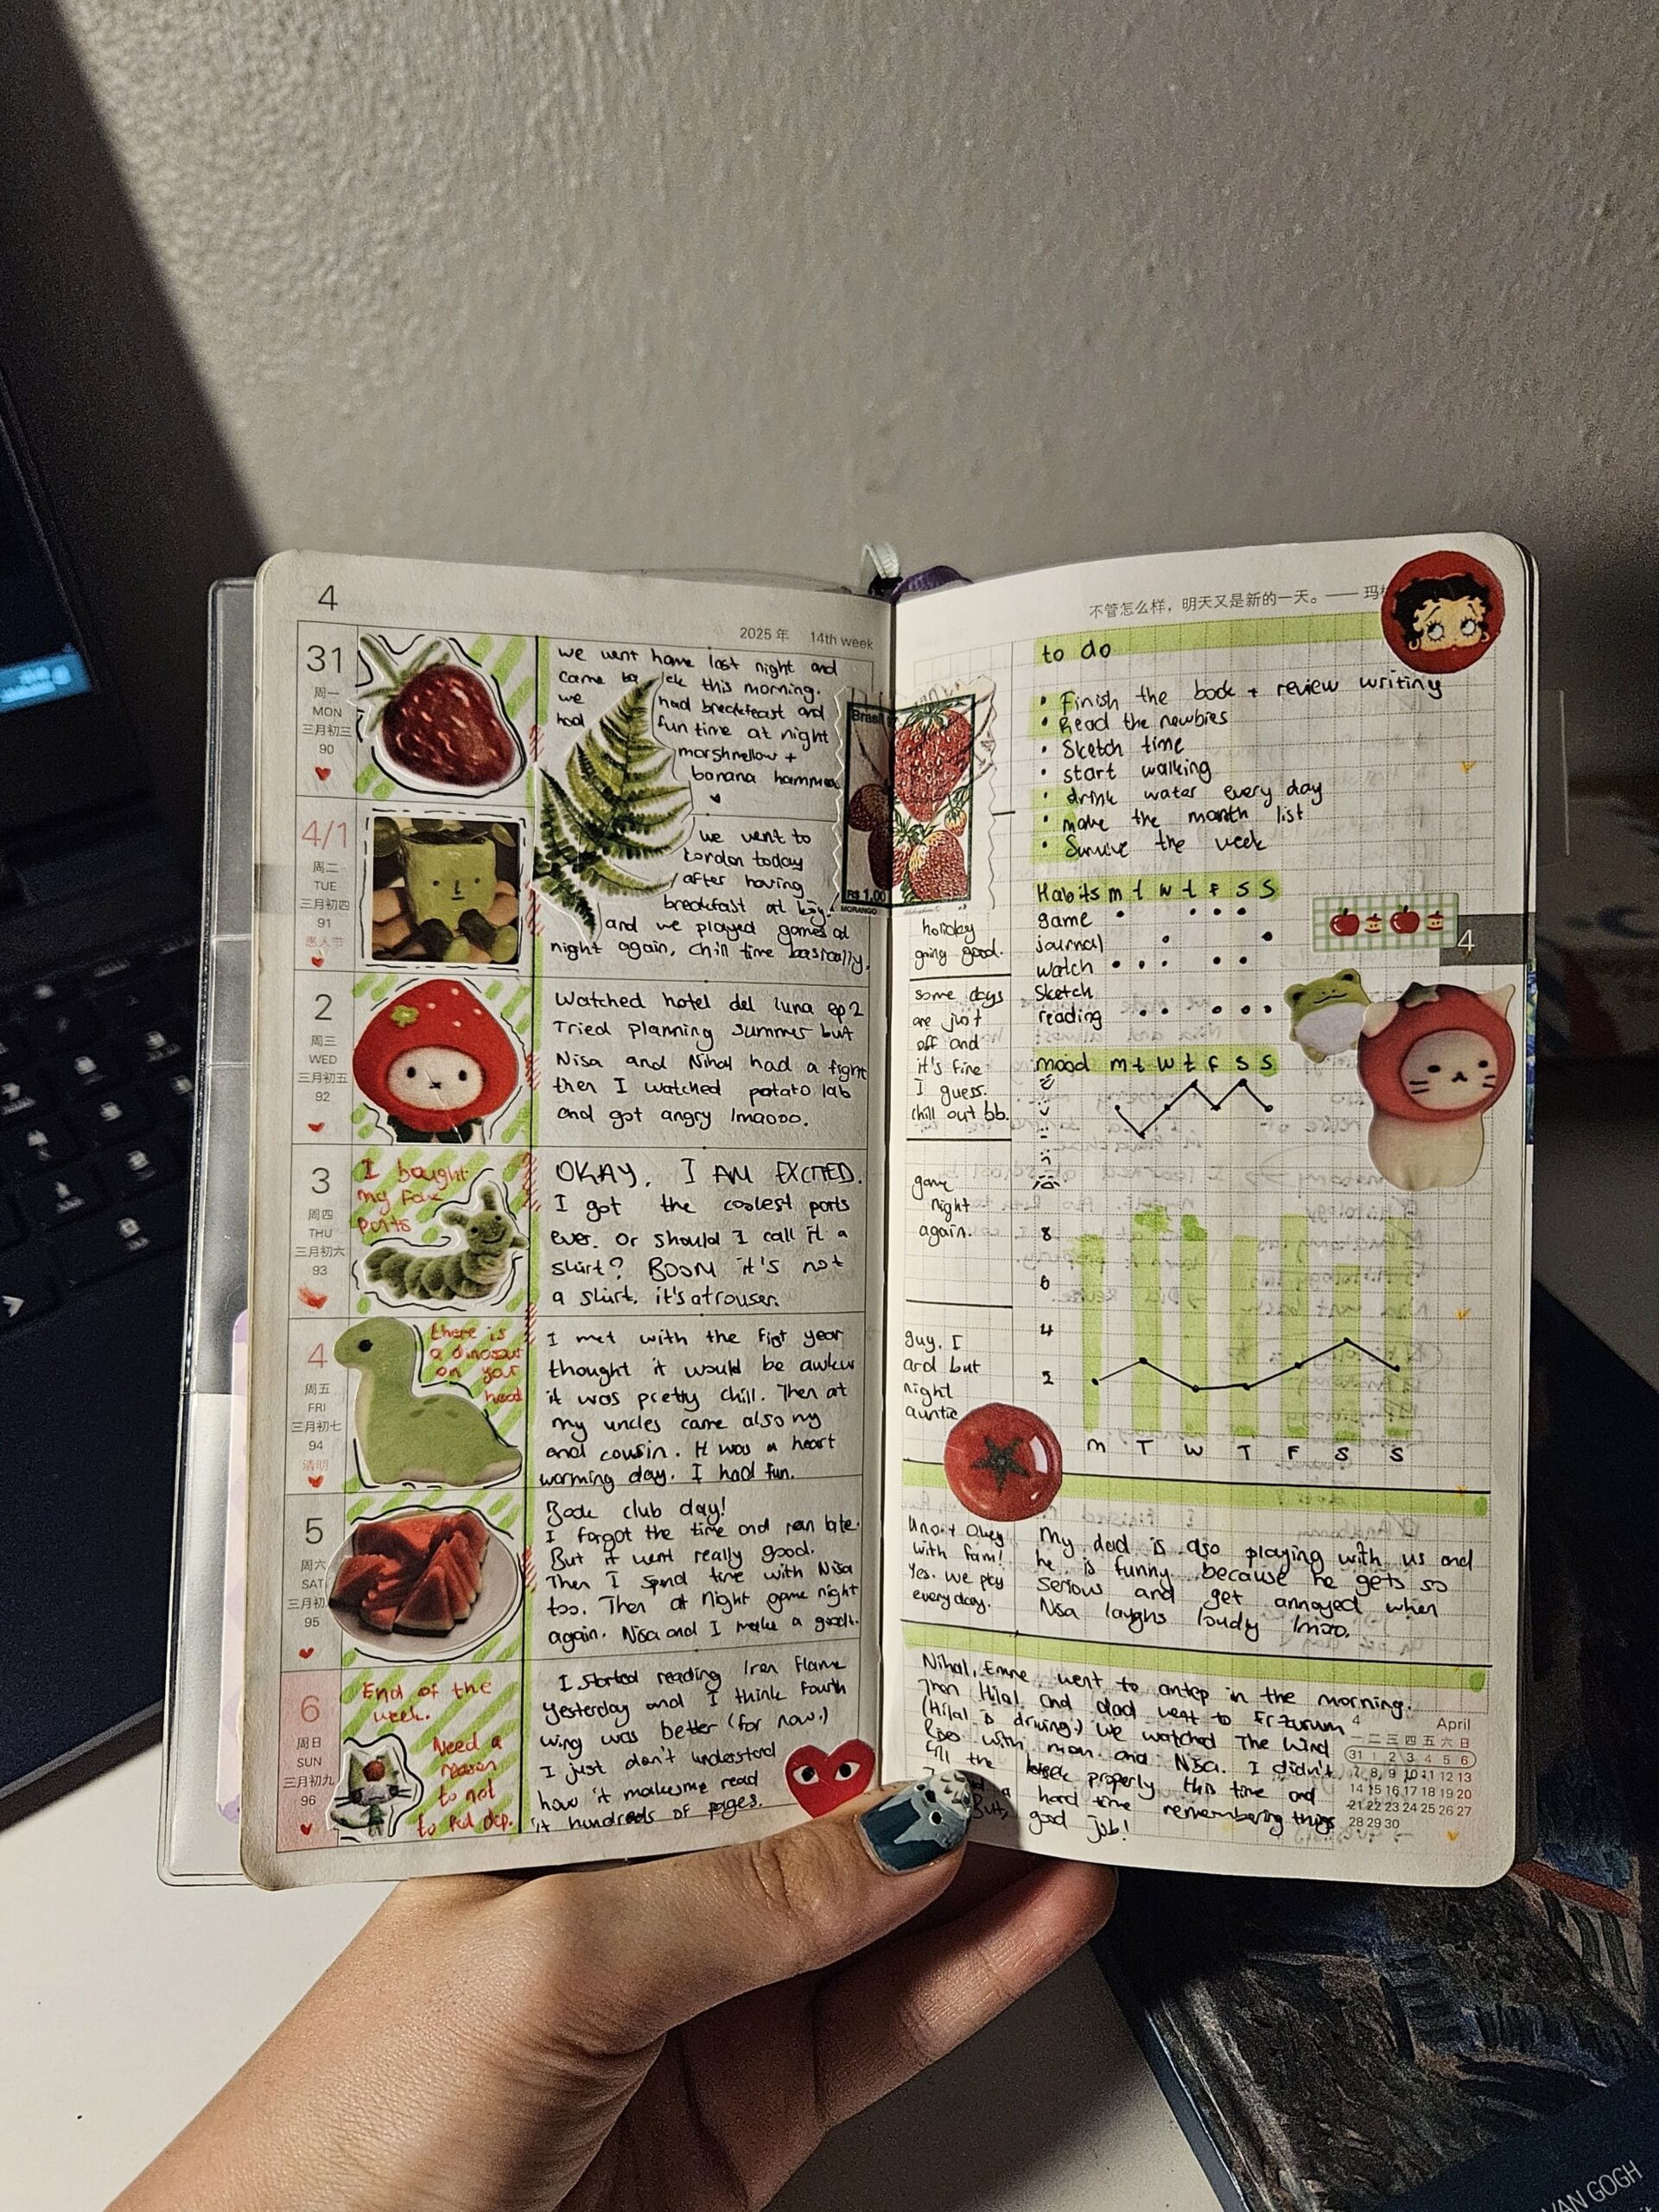 4
2025 年 14th week
31
周一
MON
三月初三
90
we went home last night and
came back this morning.
we had breakfeast and
had fun time at night
marshmellow +
banana
4/1
周二
TUE
三月初四
91
愚人节
we went to
kordon today
after having
breakfast at
and we played games at
night again, chill time basically.
2
周三
WED
三月初五
92
Watched hotel del luna ep 2
Tried planning summer but
Nisa and Nihal had a fight
then I watched potato lab
and got angry lmaooo.
3
周四
THU
三月初六
93
I bought
my fav
pants
OKAY, I AM EXCITED.
I got the coolest pants
ever. or should I call it a
skirt? BOOM it's not
a skirt. it's a trouser.
4
周五
FRI
三月初七
94
清明
there is
a dinosaur
on your
head
I met with the first year
thought it would be awkw
it was pretty chill. Then at
my uncles came also my
and cousin. It was a heart
warming day. I had fun.
5
周六
SAT
三月初
95
Book club day!
I forgot the time and ran late.
But it went really good.
Then I spend time with Nisa
too. Then at night game night
again. Nisa and I make a good t.
6
周日
SUN
三月初九
96
End of the
week.
Need a
reason
to not
to
I started reading Iron Flame
yesterday and I think fourth
wing was better (for now.)
I just don't understand
how it makes me read
it hundreds of pages.
Brasil
R$ 1,00
MORANGO
不管怎么样，明天又是新的一天。—— 玛
to do
• Finish the book + review writing
• Read the newbies
• Sketch time
• start walking
• drink water every day
• make the month list
• Survive the week
Habits m t w t F S S
game
journal
watch
sketch
reading
4
mood m t w t F S S
8
6
4
2
M T W T F S S
holiday
going good.
some days
are just
off and
it's fine
I guess.
chill out bb.
game
night
again.
guy. I
ard but
night
auntie
with fam!
Yes. We play
every day.
My dad is also playing with us and
he is funny because he gets so
serious and get annoyed when
Nisa laughs loudly lmao.
Nihal, Emne went to antep in the morning.
Then Hilal and dad went to Erzurum
(Hilal is driving.) We watched The Wind
Rises with mom and Nisa. I didn't
fill the week properly this time and
a hard time remembering things
But, good job!
4 April
一 二 三 四 五 六 日
31 1 2 3 4 5 6
7 8 9 10 11 12 13
14 15 16 17 18 19 20
21 22 23 24 25 26 27
28 29 30
VAN GOGH